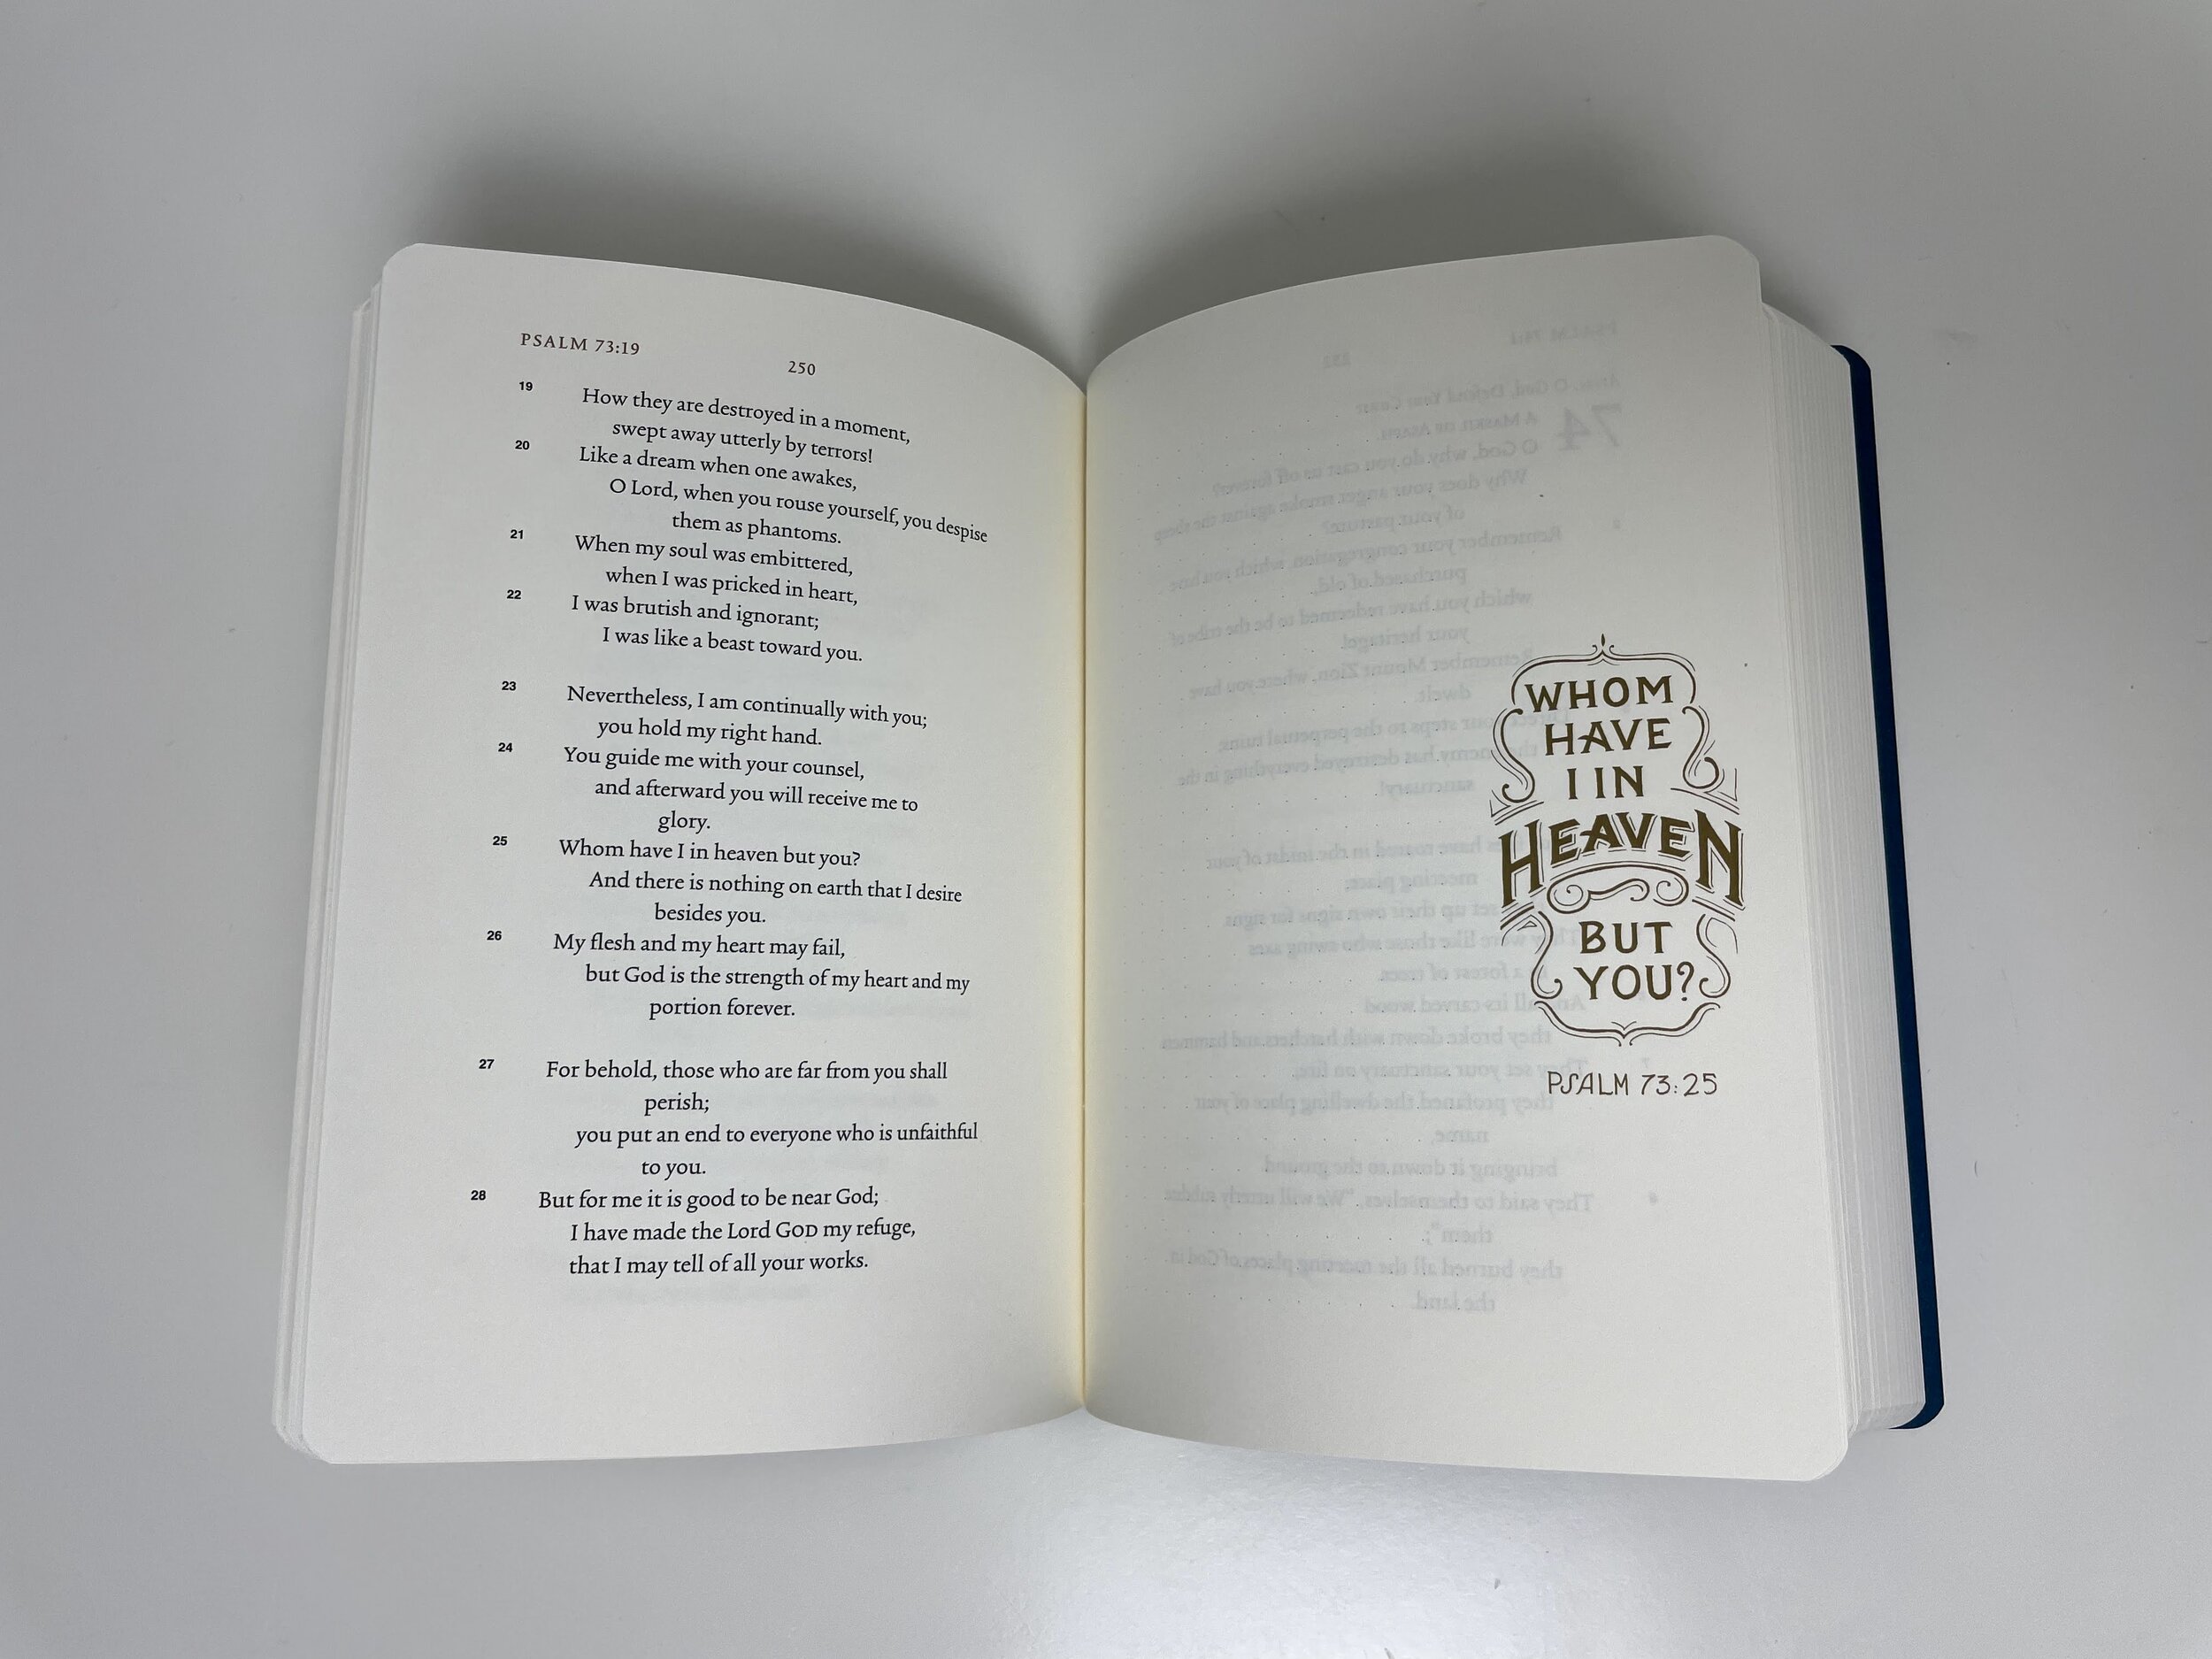 PSALM 73:19
250
19 How they are destroyed in a moment,
swept away utterly by terrors!
20 Like a dream when one awakes,
O Lord, when you rouse yourself, you despise
them as phantoms.
21 When my soul was embittered,
when I was pricked in heart,
22 I was brutish and ignorant;
I was like a beast toward you.
23 Nevertheless, I am continually with you;
you hold my right hand.
24 You guide me with your counsel,
and afterward you will receive me to
glory.
25 Whom have I in heaven but you?
And there is nothing on earth that I desire
besides you.
26 My flesh and my heart may fail,
but God is the strength of my heart and my
portion forever.
27 For behold, those who are far from you shall
perish;
you put an end to everyone who is unfaithful
to you.
28 But for me it is good to be near God;
I have made the Lord GOD my refuge,
that I may tell of all your works.
WHOM
HAVE
I IN
HEAVEN
BUT
YOU?
PSALM 73:25